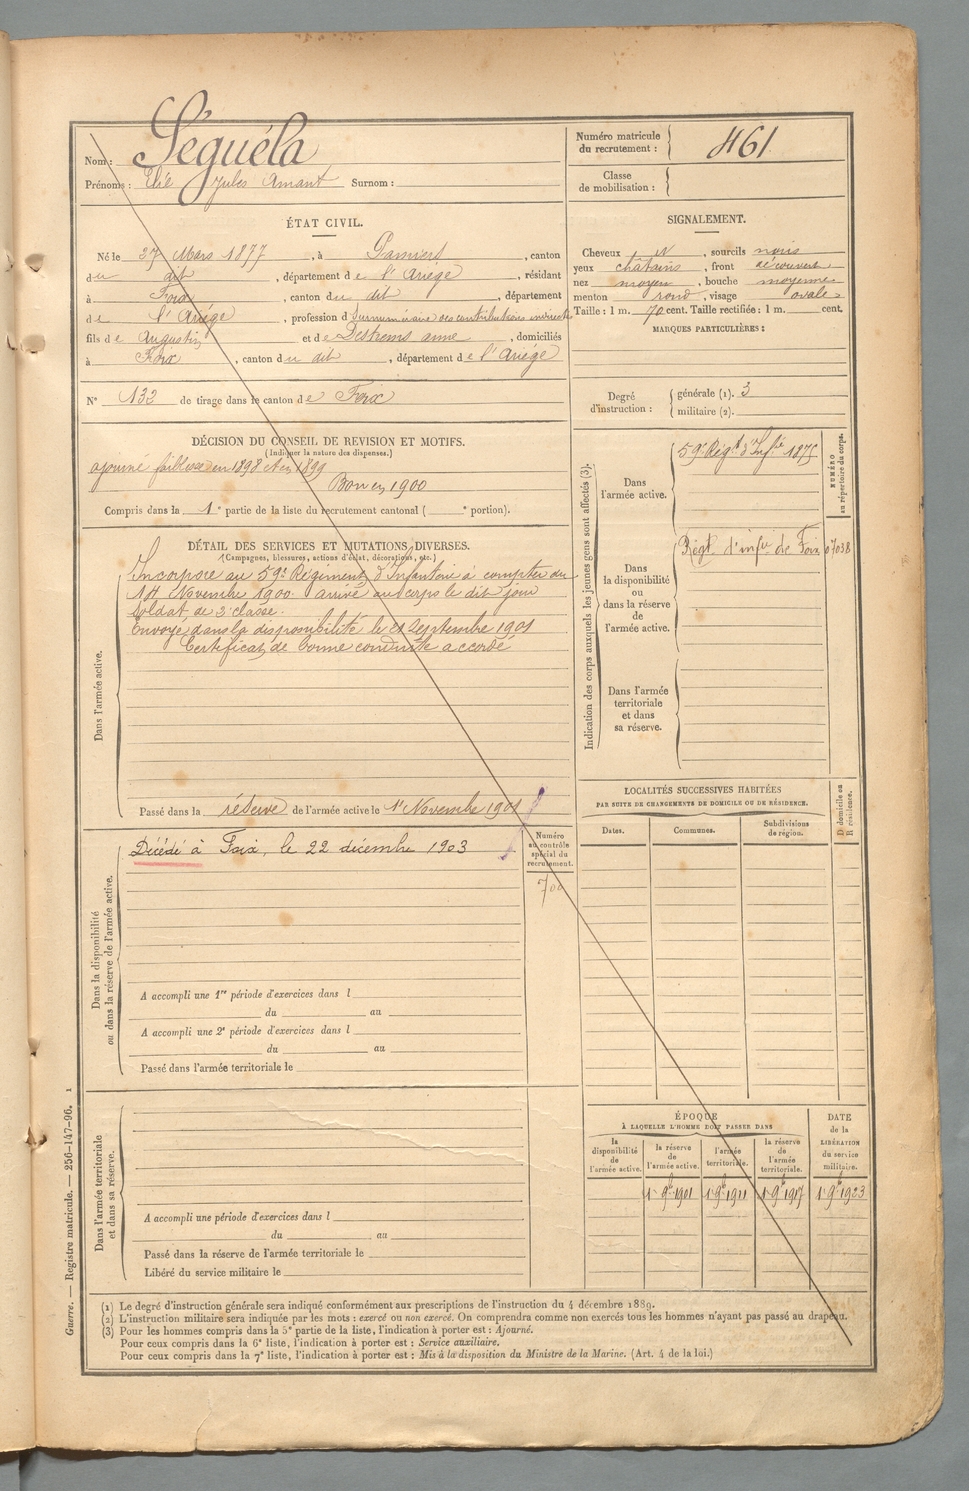 Nom : Séguéla
Prénoms : Elie Jules Amant Surnom :
Numéro matricule du recrutement : 461
Classe de mobilisation :
ÉTAT CIVIL.
Né le 27 Mars 1877, à Pamiers, canton
du dit, département de l'Ariège, résidant
à Foix, canton du dit, département
de l'Ariège, profession d surnuméraire des contributions indirectes
fils de Augustin et de Destrems anne, domiciliés
à Foix, canton du dit, département de l'Ariège
N° 132 de tirage dans le canton de Foix
SIGNALEMENT.
Cheveux N, sourcils noirs
yeux châtains, front découvert
nez moyen, bouche moyenne
menton rond, visage ovale
Taille : 1 m. 70 cent. Taille rectifiée : 1 m. cent.
MARQUES PARTICULIÈRES :
Degré d'instruction : générale (1). 3
militaire (2).
DÉCISION DU CONSEIL DE REVISION ET MOTIFS.
(Indiquer la nature des dispenses.)
ajourné faiblesse en 1898 et en 1899
Bon en 1900
Compris dans la 1e partie de la liste du recrutement cantonal ( e portion).
DÉTAIL DES SERVICES ET MUTATIONS DIVERSES.
(Campagnes, blessures, actions d'éclat, décorations, etc.)
Dans l'armée active.
Incorporé au 59e Régiment d'Infanterie à compter du
14 Novembre 1900 arrivé au corps le dit jour
Soldat de 2e classe.
Envoyé dans la disponibilité le 21 Septembre 1901
Certificat de bonne conduite accordé
Passé dans la réserve de l'armée active le 1er Novembre 1901
Dans la disponibilité ou dans la réserve de l'armée active.
Décédé à Foix, le 22 décembre 1903
Numéro au contrôle spécial du recrutement.
700
A accompli une 1re période d'exercices dans l
du au
A accompli une 2e période d'exercices dans l
du au
Passé dans l'armée territoriale le
Dans l'armée territoriale et dans sa réserve.
A accompli une période d'exercices dans l
du au
Passé dans la réserve de l'armée territoriale le
Libéré du service militaire le
Indication des corps auxquels les jeunes gens sont affectés (3).
NUMÉRO au répertoire du corps.
Dans l'armée active.
59e Régt d'Infie 1875
Dans la disponibilité ou dans la réserve de l'armée active.
Régt d'infie de Foix 07038
Dans l'armée territoriale et dans sa réserve.
LOCALITÉS SUCCESSIVES HABITÉES
PAR SUITE DE CHANGEMENTS DE DOMICILE OU DE RÉSIDENCE.
D domicile ou R résidence.
Dates. Communes. Subdivisions de région.
ÉPOQUE
À LAQUELLE L'HOMME DOIT PASSER DANS
DATE de la LIBÉRATION du service militaire.
la disponibilité de l'armée active.
la réserve de l'armée active.
l'armée territoriale.
la réserve de l'armée territoriale.
1er 9bre 1901 1er 9bre 1911 1er 9bre 1917 1er 9bre 1923
(1) Le degré d'instruction générale sera indiqué conformément aux prescriptions de l'instruction du 4 décembre 1889.
(2) L'instruction militaire sera indiquée par les mots : exercé ou non exercé. On comprendra comme non exercés tous les hommes n'ayant pas passé au drapeau.
(3) Pour les hommes compris dans la 5e partie de la liste, l'indication à porter est : Ajourné.
Pour ceux compris dans la 6e liste, l'indication à porter est : Service auxiliaire.
Pour ceux compris dans la 7e liste, l'indication à porter est : Mis à la disposition du Ministre de la Marine. (Art. 4 de la loi.)
Guerre. — Registre matricule. — 256-147-96. 1